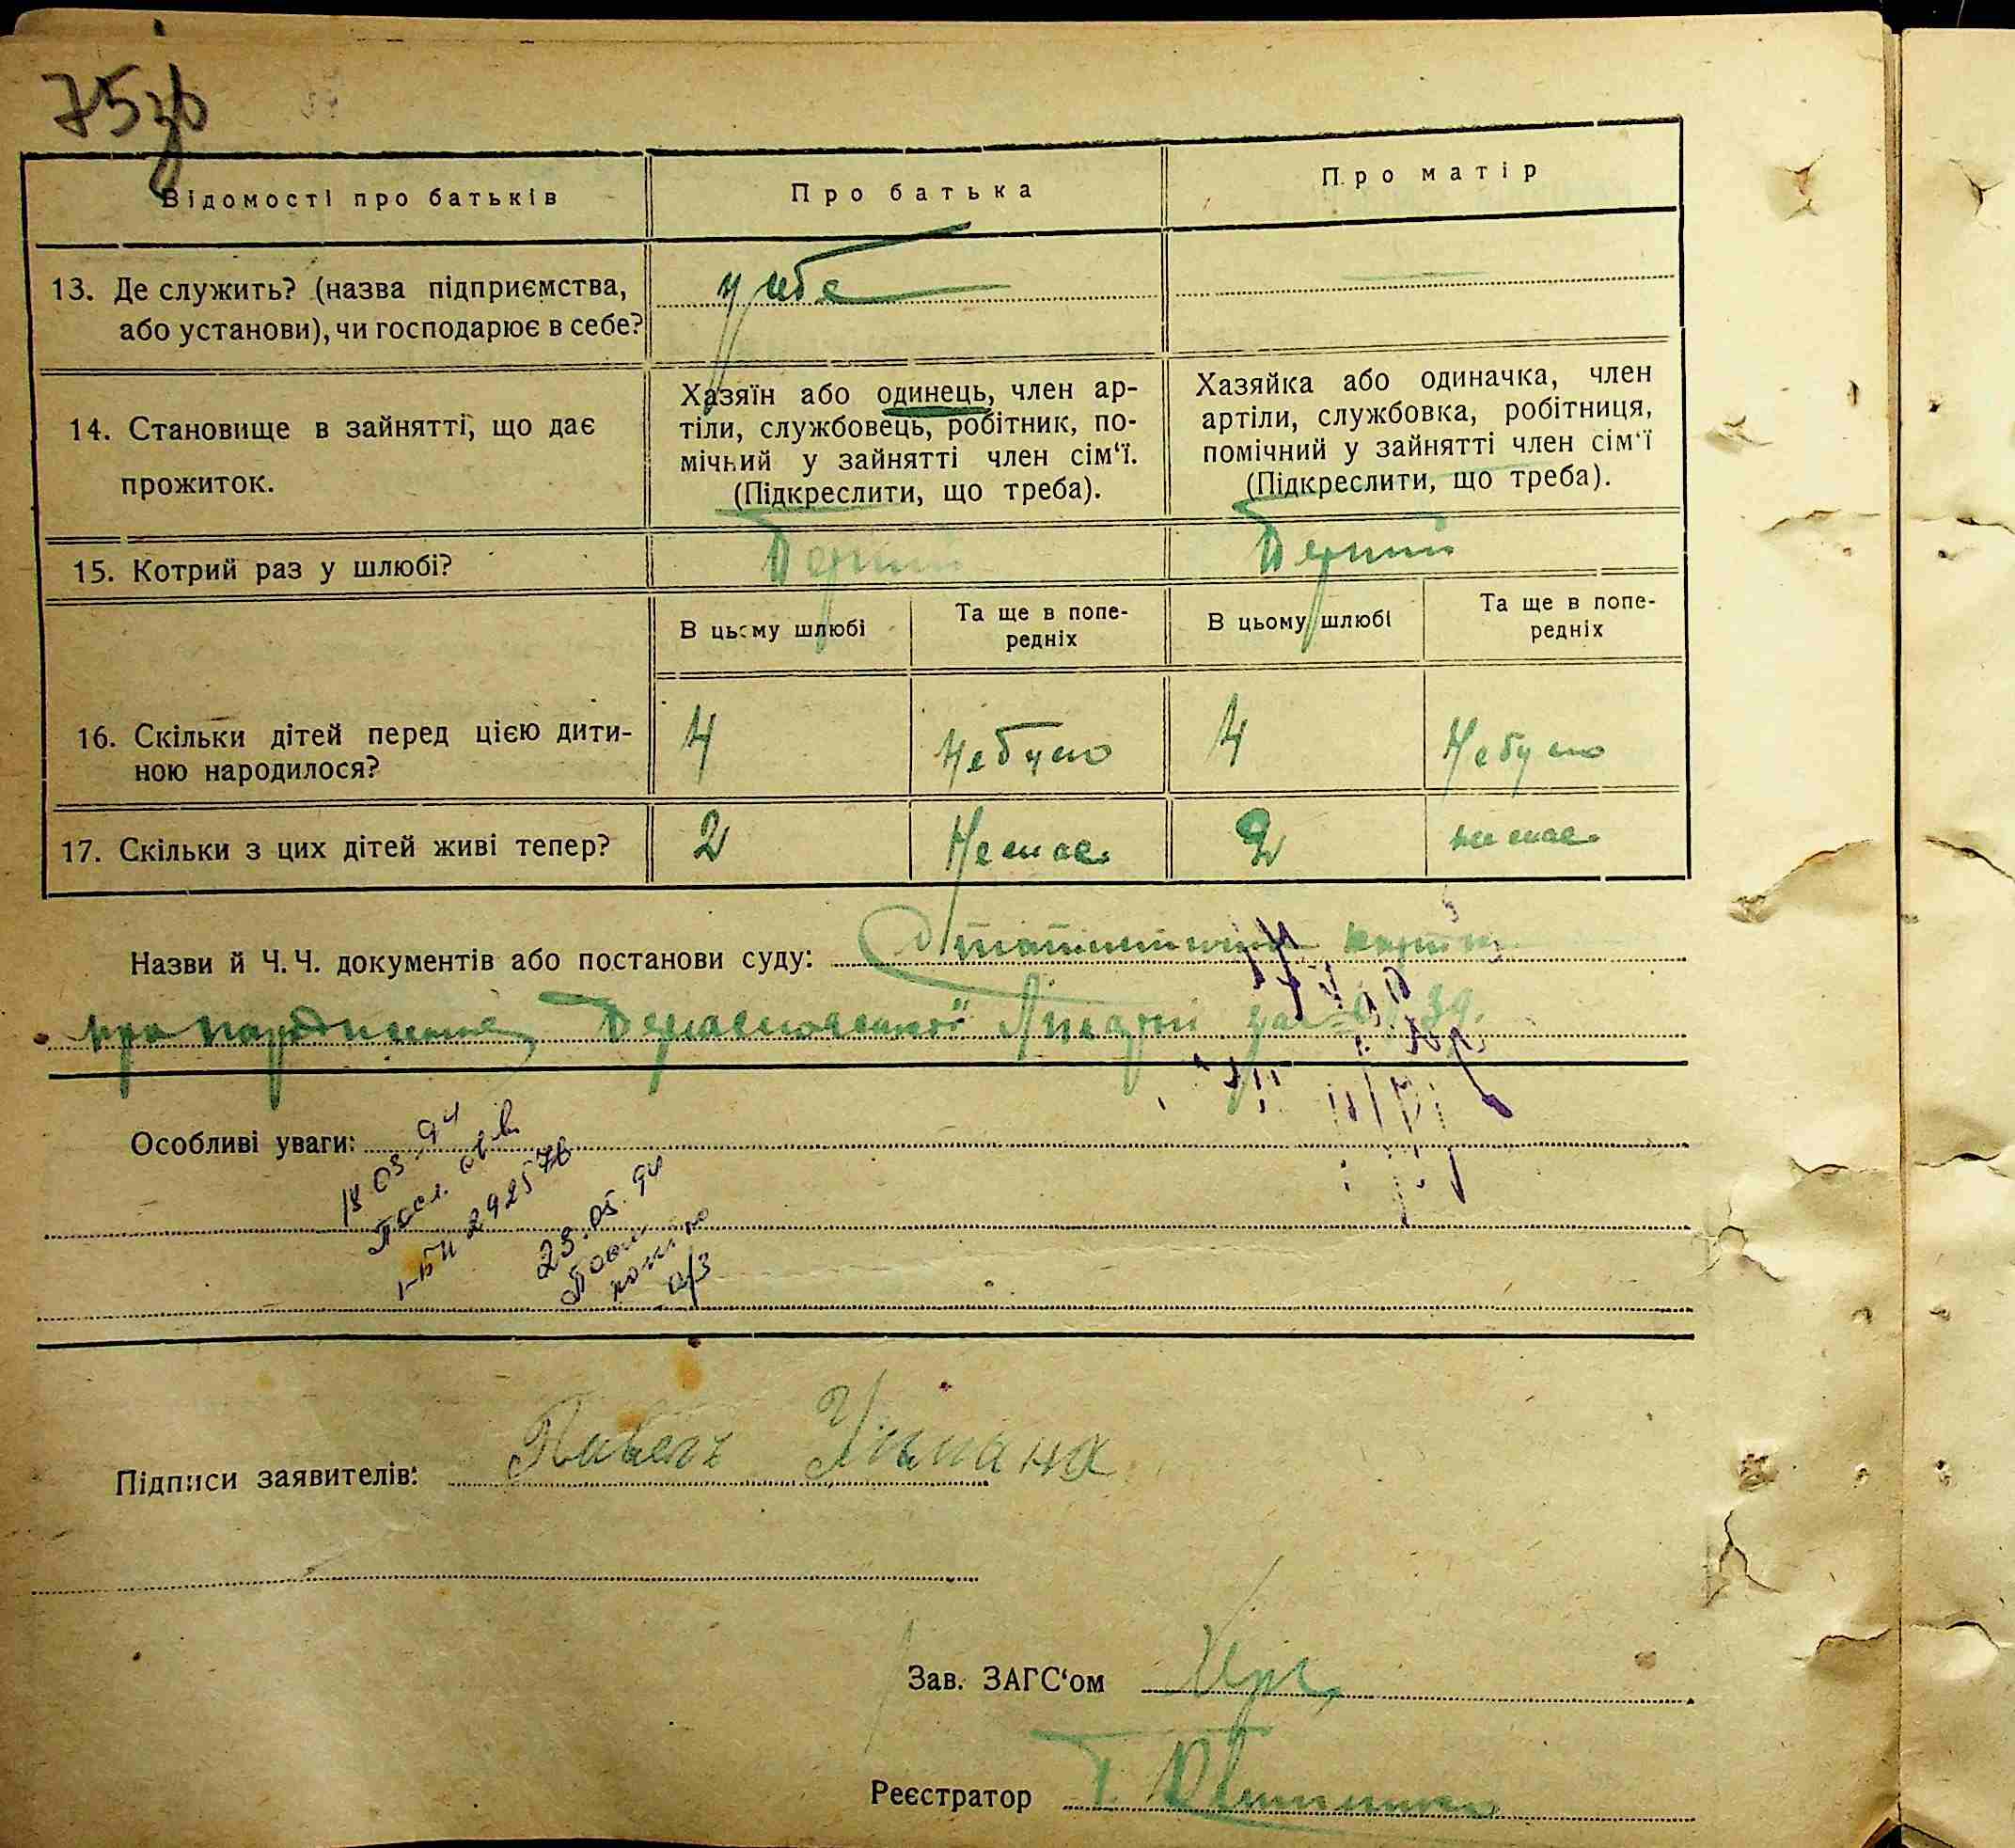 75зв
Відомості про батьків
Про батька
Про матір
13. Де служить? (назва підприємства,
або установи), чи господарює в себе?
у себе
14. Становище в зайнятті, що дає
прожиток.
Хазяїн або одинець, член ар-
тіли, службовець, робітник, по-
мічний у зайнятті член сім‘ї.
(Підкреслити, що треба).
Хазяйка або одиначка, член
артіли, службовка, робітниця,
помічний у зайнятті член сім‘ї
(Підкреслити, що треба).
15. Котрий раз у шлюбі?
Перший
Перший
В цьому шлюбі
Та ще в попе-
редніх
В цьому шлюбі
Та ще в попе-
редніх
16. Скільки дітей перед цією дити-
ною народилося?
4
Небуло
4
Небуло
17. Скільки з цих дітей живі тепер?
2
Немає
2
немає
Назви й Ч. Ч. документів або постанови суду:
про народження
Особливі уваги:
18.03.94
292576
25.05.94
Підписи заявителів: Павелъ
Зав. ЗАГС‘ом
Реєстратор